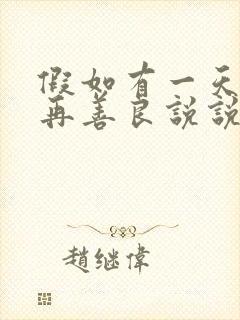 假如有一天
再善良説説
趙继偉